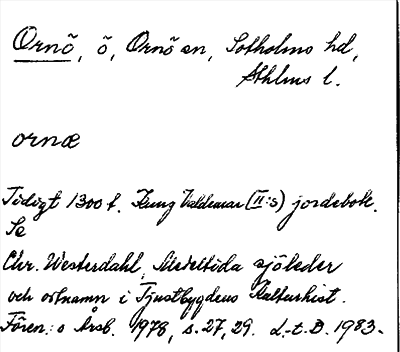 Ornö, ö, Ornö sn, Sotholms hd,
Sthlms l.
ornæ
Tidigt 1300 t. Kung Valdemar (II:s) jordebok.
Se
Chr. Westerdahl, Medeltida sjöleder
och ortnamn i Tjustbygdens Kulturhist.
Fören:s Årsb. 1978, s. 27, 29. L-t. B. 1983.